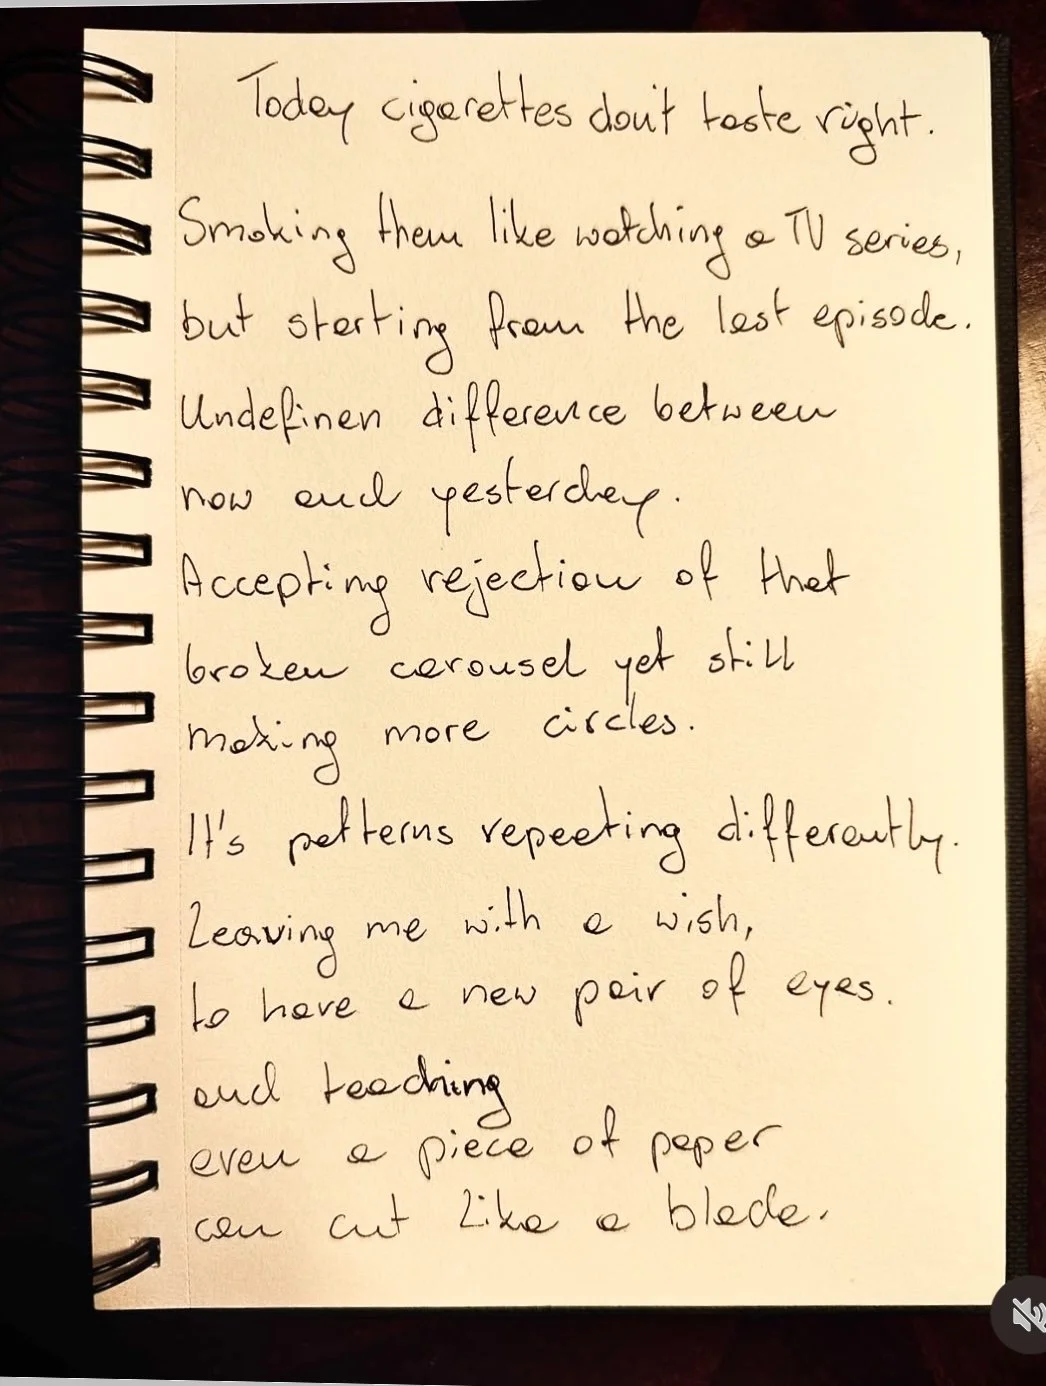 Today cigarettes don't taste right.
Smoking them like watching a TV series,
but starting from the last episode.
Undefinen difference between
now and yesterday.
Accepting rejection of that
broken carousel yet still
making more circles.
It's patterns repeating differently.
Leaving me with a wish,
to have a new pair of eyes.
and teaching
even a piece of paper
can cut like a blade.